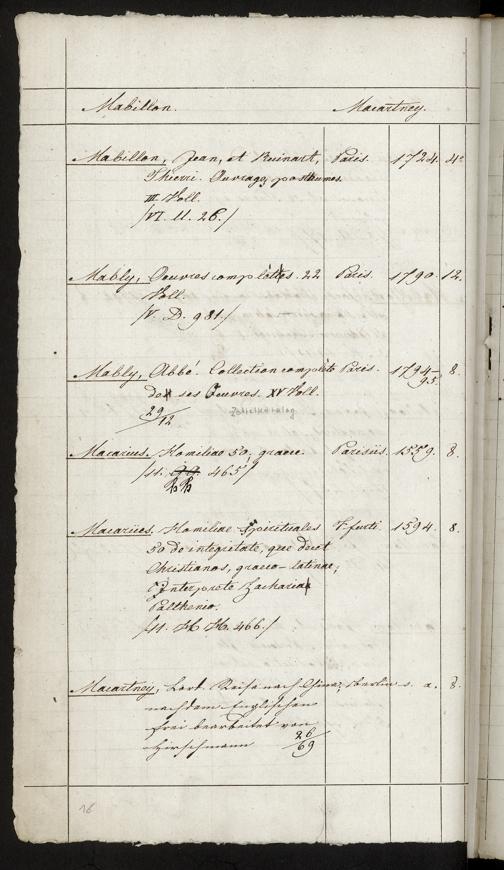 Mabillon. Macartney.
Mabillon, Jean, et Ruinart, Paris. 1724. 4°
Thierri. Ouvrages posthumes.
III Voll.
/VI. 11. 26./
Mably, Oeuvres complètes. 22 Paris. 1790. 12.
Voll.
/V. D. 981./
Mably, Abbé. Collection complète Paris. 1794– 8.
95.
de ses Oeuvres. XV Voll.
29/12
Zettelkatalog
Macarius. Homiliae 50, graece. Parisiis. 1559. 8.
465/
Macarius. Homiliae Spirituales Ffurti. 1594. 8.
50 de integritate, quae decet
Christianos, graeco-latinae;
Interprete Zacharia
Palthenio.
466./
Macartney, Lord. Reise nach China; Berlin s. a. 8.
nach dem Englischen
frei bearbeitet von
Hirschmann 26/69
16